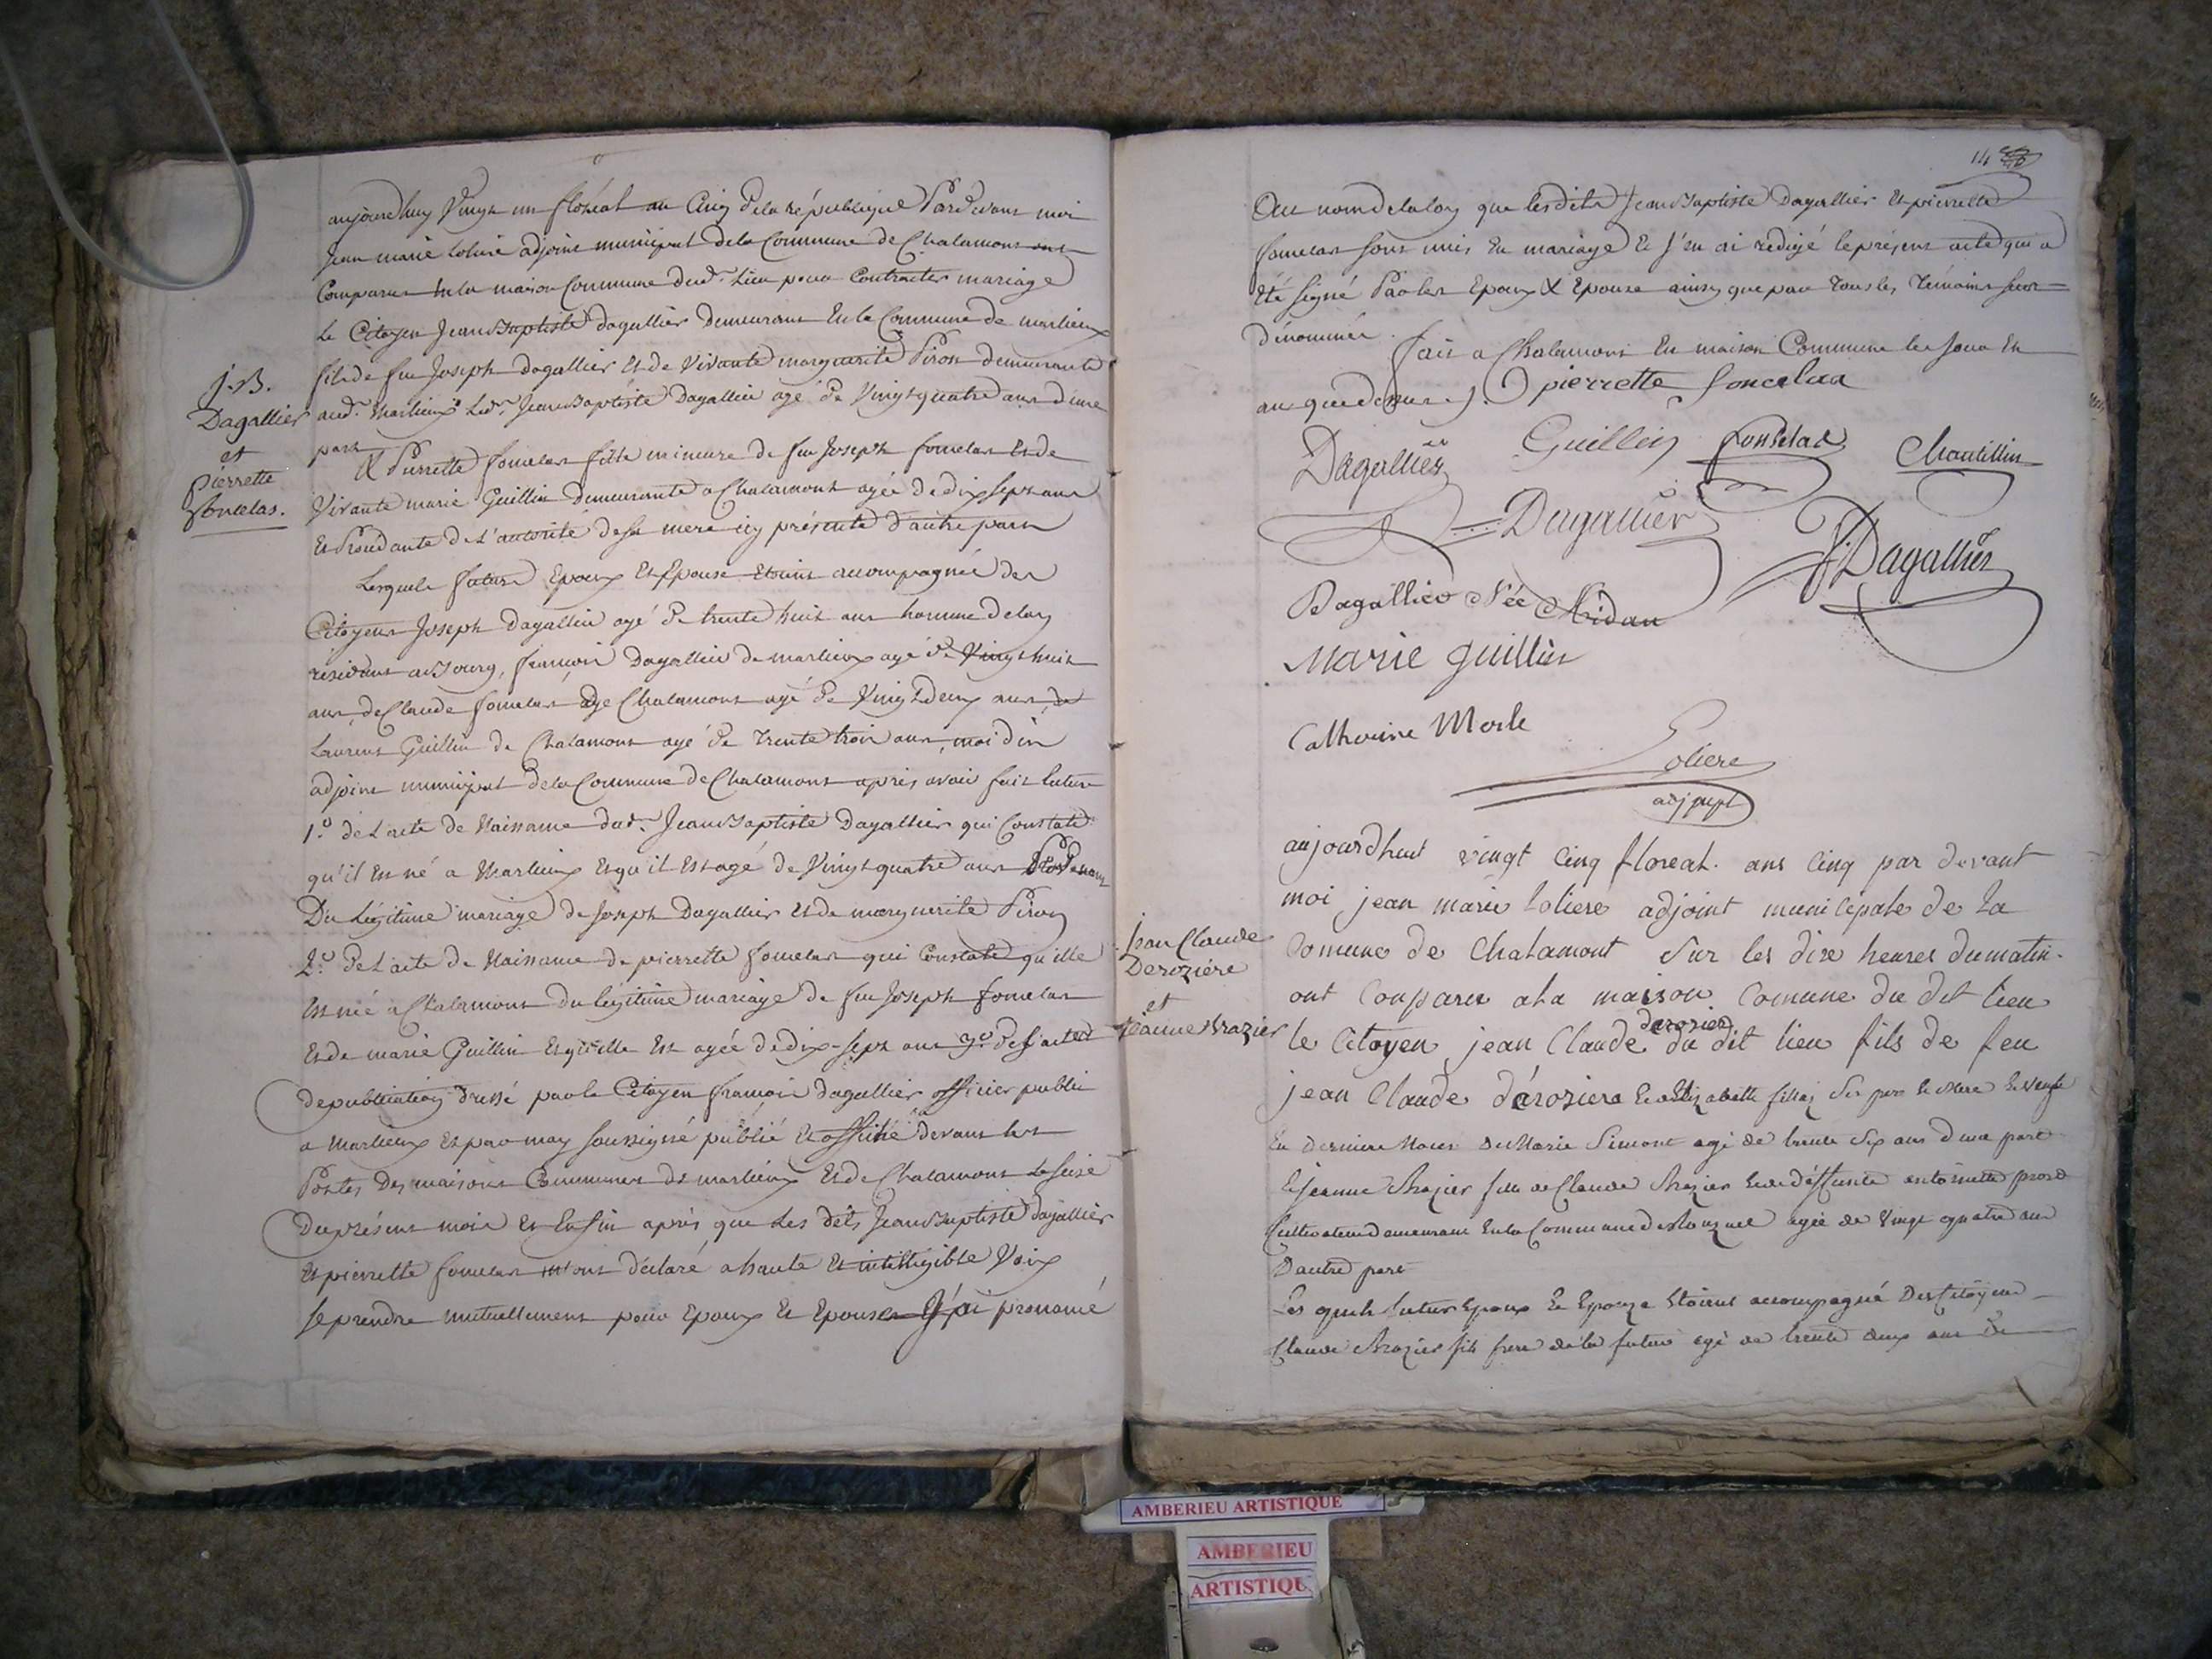 J.B.
Dagallier
et
pierrette
foncelas.
aujourdhuy Vingt un floréal an Cinq dela republique Pardevant moi
Jean marie Loliere adjoint municipal dela Commune de Chalamont ont
Comparus en la maison Commune dud. Lieu pour Contracter mariage
Le Citoyen Jean Baptiste Dagallier demeurant En la Commune de marlieux
fils de feu Joseph dagallier et de Vivante marguerite Piron demeurante
aud. Marlieux Led. Jean Baptiste Dagallier agé de Vingt quatre ans d'une
part
& Pierrette foncelas fille mineure de feu Joseph foncelas Et de
Vivante marie Guillin demeurante a Chalamont agée de dix sept ans
de l'autorité de sa mere icy présente d'autre part
Lesquels futurs Epoux Et Epouse Etoient accompagnés des
Citoyens Joseph Dagallier agé de trente huit ans homme de loy
résidant a Bourg, francois Dagallier de marlieux agé de Vingt huit
ans, de Claude foncelas de Chalamont agé de Vingt Deux ans de
Laurens Guillin de Chalamont agé de trente trois ans, moi dit
adjoint municipal dela Commune de Chalamont après avoir fait lecture
1.° de L'acte de Naissance dud. Jean Baptiste Dagallier qui Constate
qu'il Est né a Marlieux Et qu'il Est agé de Vingt quatre ans Provenant
Du Légitime mariage de Joseph Dagallier Et de marguerite Piron
2.° De L'acte de Naissance de pierrette foncelas qui Constate qu'elle
Est née a Chalamont du legitime mariage de feu Joseph foncelas
Et de marie Guillin Et qu'elle Est agée de dix-sept ans 3.° de l'acte
de publication dressé par le Citoyen francois dagallier officier public
a Marlieux Et par moy soussigné publié Et affiché devant les
Portes Des maisons Communes de marlieux Et de Chalamont Le seize
Du présent mois Et Enfin après que Les dits Jean Baptiste dagallier
Et pierrette foncelas m'ont déclaré a haute Et intelligible Voix
se prendre mutuellement pour Epoux Et Epouse J'ai prononcé
14
Au nom dela loy que lesdits Jean Baptiste Dagallier Et pierrette
foncelas sont unis En mariage Et J'en ai redigé le présent acte qui a
Eté signé Par les Epoux & Epouse ainsy que par Tous les Témoins sus-
dénommés.
fait a Chalamont En maison Commune les Jour Et
an que dessus
pierrette foncelas
Dagallier
Guillin
fonselas
Chatillin
Dagallier
J. Dagallier
Dagallier Née Midan
Marie guillin
Catherine Morle
Loliere
adj mpl
Jean Claude
Deroziére
et
Jeanne Brazier
aujourdhuit vingt Cinq floreal. ans Cinq par devant
moi jean marie loliere adjoint municipale de La
Comune de Chalamont Sur les dixe heures du matin.
ont Conparu a La maison Comune du dit lieu
le Citoyen jean Claude derozier du dit lieu fils de feu
jean Claude dérosiere Et Elizabette fillion Ses pere Et Mere Et veufe
En derniere Noces de Marie Simont agé de trente Six ans d'une part
Et Jeanne Brazier fille de Claude Brazier Et de déffunte antoinette
Cultivateur demeurant En la Commune de agée de Vingt quatre ans
D'autre part
Les quels futur Epoux Et Epouze Etoient accompagné Des Citoyens
Claude Brazier fils frere de la future agé de trente deux ans de
AMBERIEU ARTISTIQUE
AMBERIEU
ARTISTIQU